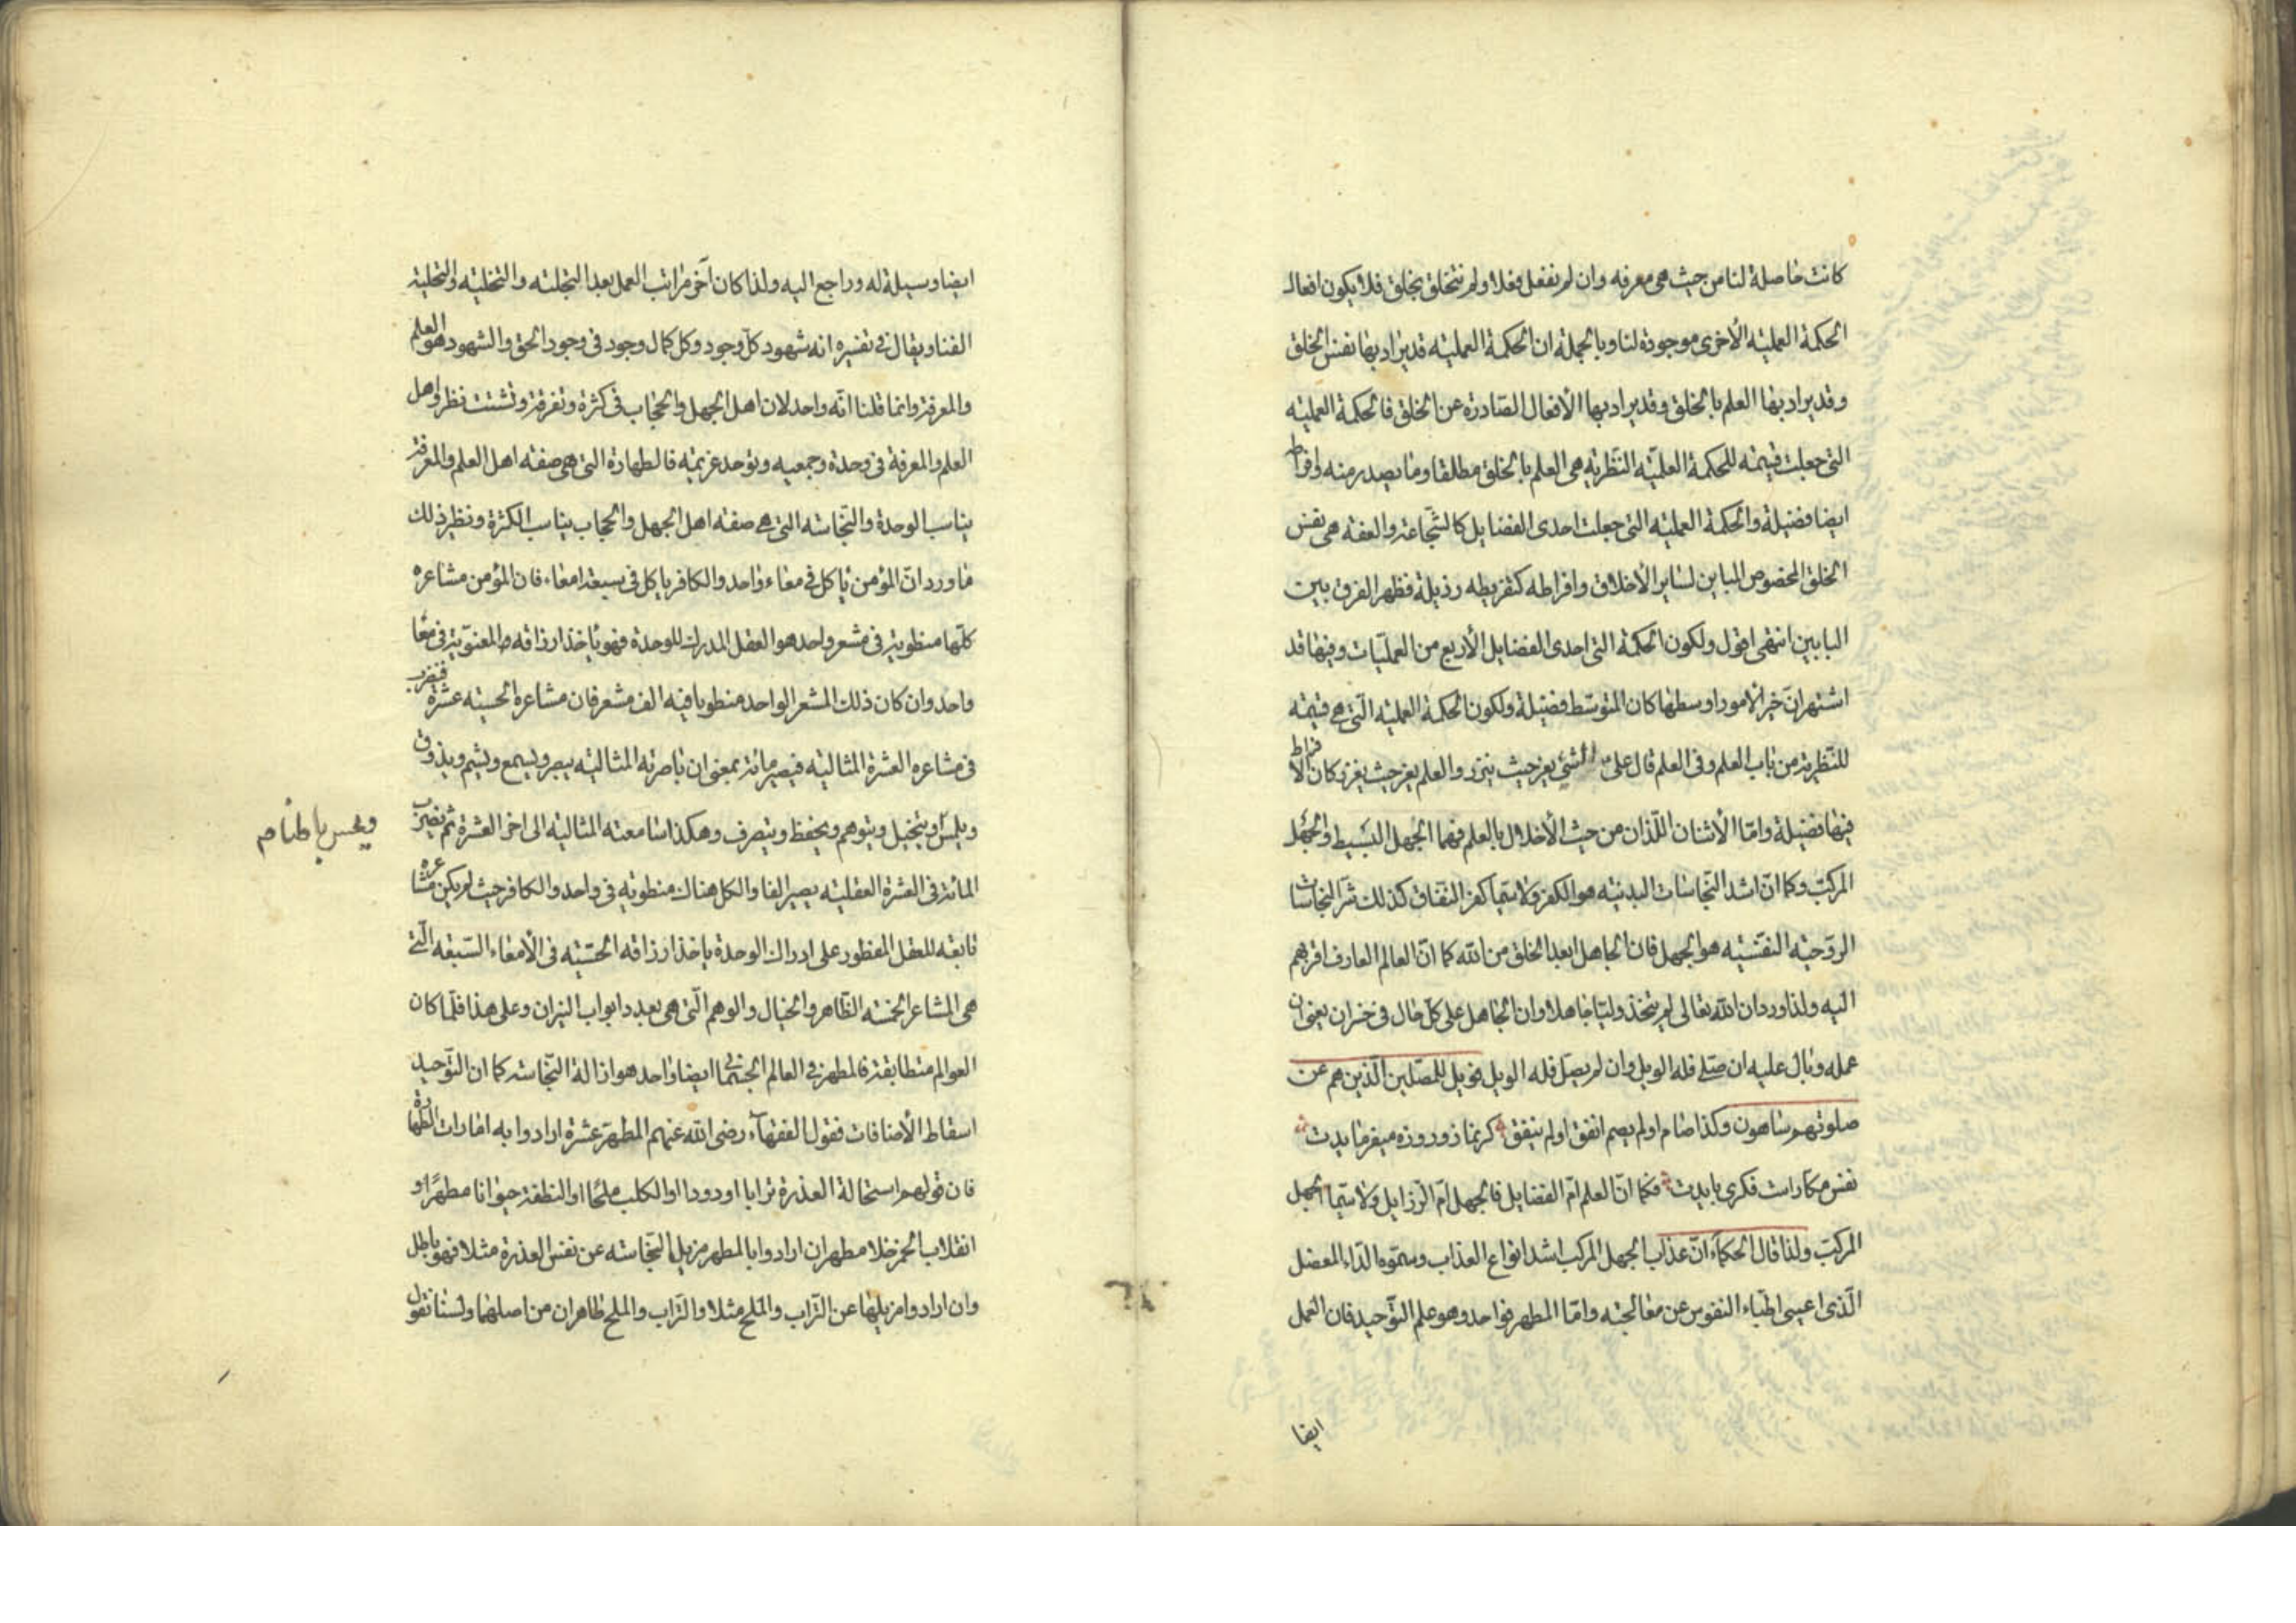 كانت حاصلة لنا من حيث هى معرفه وان لم نفعل فعلا ولم نتخلق بخلق فلا يكون افعال
الحكمة العمليه الأخرى موجودة لنا وبالجملة ان الحكمة العمليه قد يراد بها نفس الخلق
وقد يراد بها العلم بالخلق وقد يراد بها الأفعال الصادرة عن الخلق فالحكمة العمليه
التى جعلت قسيمه للحكمة العلميّه النّظريه هى العلم بالخلق مطلقا وما يصدر منه وافراطها
ايضا فضيلة والحكمة العمليه التى جعلت احدى الفضايل كالشّجاعة والعفه هى نفس
الخلق المخصوص المباين لساير الأخلاق وافراطه كتفريطه رذيلة فظهر الفرق بين
البابين انتهى اقول ولكون الحكمة التى احدى الفضايل الأربع من العمليّات وفيها قد
اشتهر انّ خير الأمور اوسطها كان المتوسّط فضيلة ولكون الحكمة العمليه الّتى هى قسيمه
للنّظرية من باب العلم وفى العلم قال على ع الشىء يعز حيث ينزر والعلم يعز حيث يغزر كان الافراط
فيها فضيلة وامّا الأثنان اللّذان من حيث الأخلال بالعلم فهما الجهل البسيط والجهل
المركّب وكما انّ اشد النّجاسات البدنيّه هو الكفر ولا سيّما كفر النّفاق كذلك شرّ النجاسات
الرّوحيّه النفسّيه هو الجهل فان الجاهل ابعد الخلق من الله كما انّ العالم العارف اقربهم
اليه ولذا ورد ان الله تعالى لم يتخذ وليّا جاهلا وان الجاهل على كلّ حال فى خسران يعنى ان
عمله وبال عليه ان صلّى فله الويل وان لم يصلّ فله الويل فويل للمصّلين الّذين هم عن
صلوتهم ساهون وكذا صام او لم يصم انفق او لم ينفق كر نماز و روزه ميفرمايدت
نفس مكارات فكرى بايدت فكما انّ العلم امّ الفضايل فالجهل امّ الرّزايل ولا سيّما الجهل
المركّب ولذا قال الحكماء انّ عذاب الجهل المركب اشد انواع العذاب وسمّوه الدّاء المعضل
الّذى اعيى اطبّاء النفوس عن معالجته وامّا المطهر فواحد وهو علم التّوحيد فان العمل
ايضا
ايضا وسيلة له وراجع اليه ولذا كان آخر مراتب العمل بعد التجليه والتخليه والتحلية
الفنا ويقال فى تفسيره انه شهود كلّ وجود وكل كمال وجود فى وجود الحق والشهود هو العلم
والمعرفة وانما قلنا انّه واحد لان اهل الجهل والحجاب فى كثرة وتفرقة وتشتت نظر واهل
العلم والمعرفة فى وحدة وجمعيه وتوحد عزيمه فالطهارة التى هى صفه اهل العلم والمعرفة
يناسب الوحدة والنّجاسه التى هى صفه اهل الجهل والحجاب يناسب الكثرة ونظير ذلك
ما ورد انّ المؤمن يأكل فى معاء واحد والكافر يأكل فى سبعة امعاء فان المؤمن مشاعره
كلّها منطوية فى مشعر واحد هو العقل المدرك للوحدة فهو يأخذ ارزاقه المعنوّية فى معا
واحد وان كان ذلك المشعر الواحد منطويا فيه الف مشعر فان مشاعره الحسيّه عشرة فيضرب
فى مشاعره العشرة المثاليّه فيصير مائة بمعنى ان باصرته المثاليّه يبصر ويسمع ويشم ويذوق
ويلمس ويتخيل ويتوهم ويحفظ ويتصرف وهكذا سامعته المثاليّه الى اخر العشرة ثم يضرب
ويحس باطنا صح
المائة فى العشرة العقليّه يصير الفا والكل هناك منطويه فى واحد والكافر حيث لم يكن مشاعره
تابعه للعقل المفطور على ادراك الوحدة يأخذ ارزاقه الحسّيه فى الأمعاء السّبعه الّتى
هى المشاعر الخمسه الظّاهر والخيال والوهم الّتى هى بعدد ابواب النيران وعلى هذا فلمّا كان
العوالم متطابقة فالمطهر فى العالم الجسمانى ايضا واحد هو ازالة النّجاسه كما ان التّوحيد
اسقاط الأضافات فقول الفقهاء رضى الله عنهم المطهر عشرة ارادوا به امارات الطهارة
فان قولهم استحالة العذرة ترابا او دودا او الكلب ملحا او النطفة حيوانا مطهر او
انقلاب الخمر خلا مطهر ان ارادوا بالمطهر مزيل النّجاسه عن نفس العذرة مثلا فهو باطل
وان ارادوا مزيلها عن التّراب والملح مثلا والتّراب والملح طاهران من اصلهما ولسنا نقول